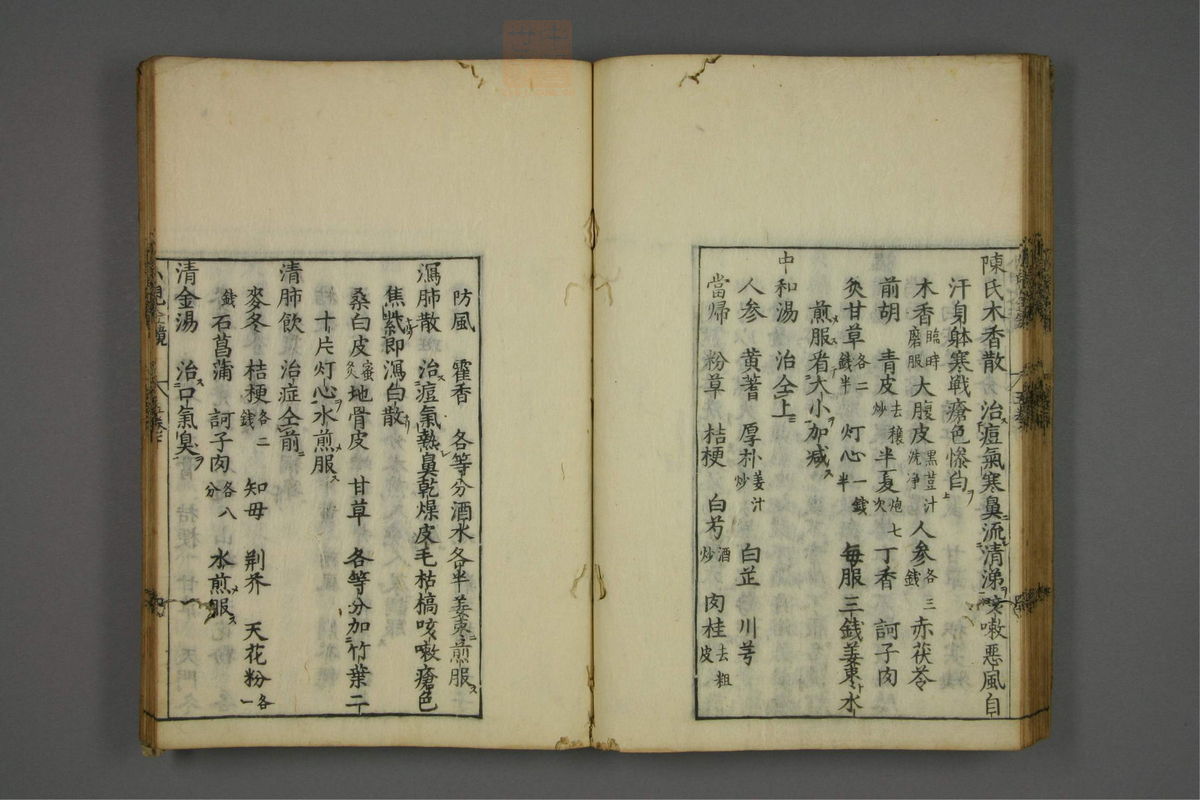 陳氏木香散　治痘氣寒鼻流清涕咳嗽惡風自
汗身躰寒戦瘡色慘白
木香臨時磨服大腹皮黒荳汁洗浄人参各三錢赤茯苓
前胡　青皮去穰炒半夏炮七次丁香　訶子肉
灸甘草各二錢半灯心一錢半　毎服三錢姜棗水
煎服看大小加减
中和湯　治仝上
人参　黄蓍　厚朴姜汁炒　白芷　川芎
當帰　粉草　桔梗　白芍酒炒　肉桂去粗皮
防風　霍香　各等分酒水各半姜棗煎服
瀉肺散　治痘氣熱鼻乾燥皮毛枯槁咳嗽瘡色
焦紫即瀉白散
桑白皮蜜灸地骨皮　甘草　各等分加竹葉二
十片灯心水煎服
清肺飲　治症仝前
麥冬　桔梗各二錢　知母　荆芥　天花粉各一
錢石菖蒲　訶子肉各八分　水煎服
清金湯　治口氣臭